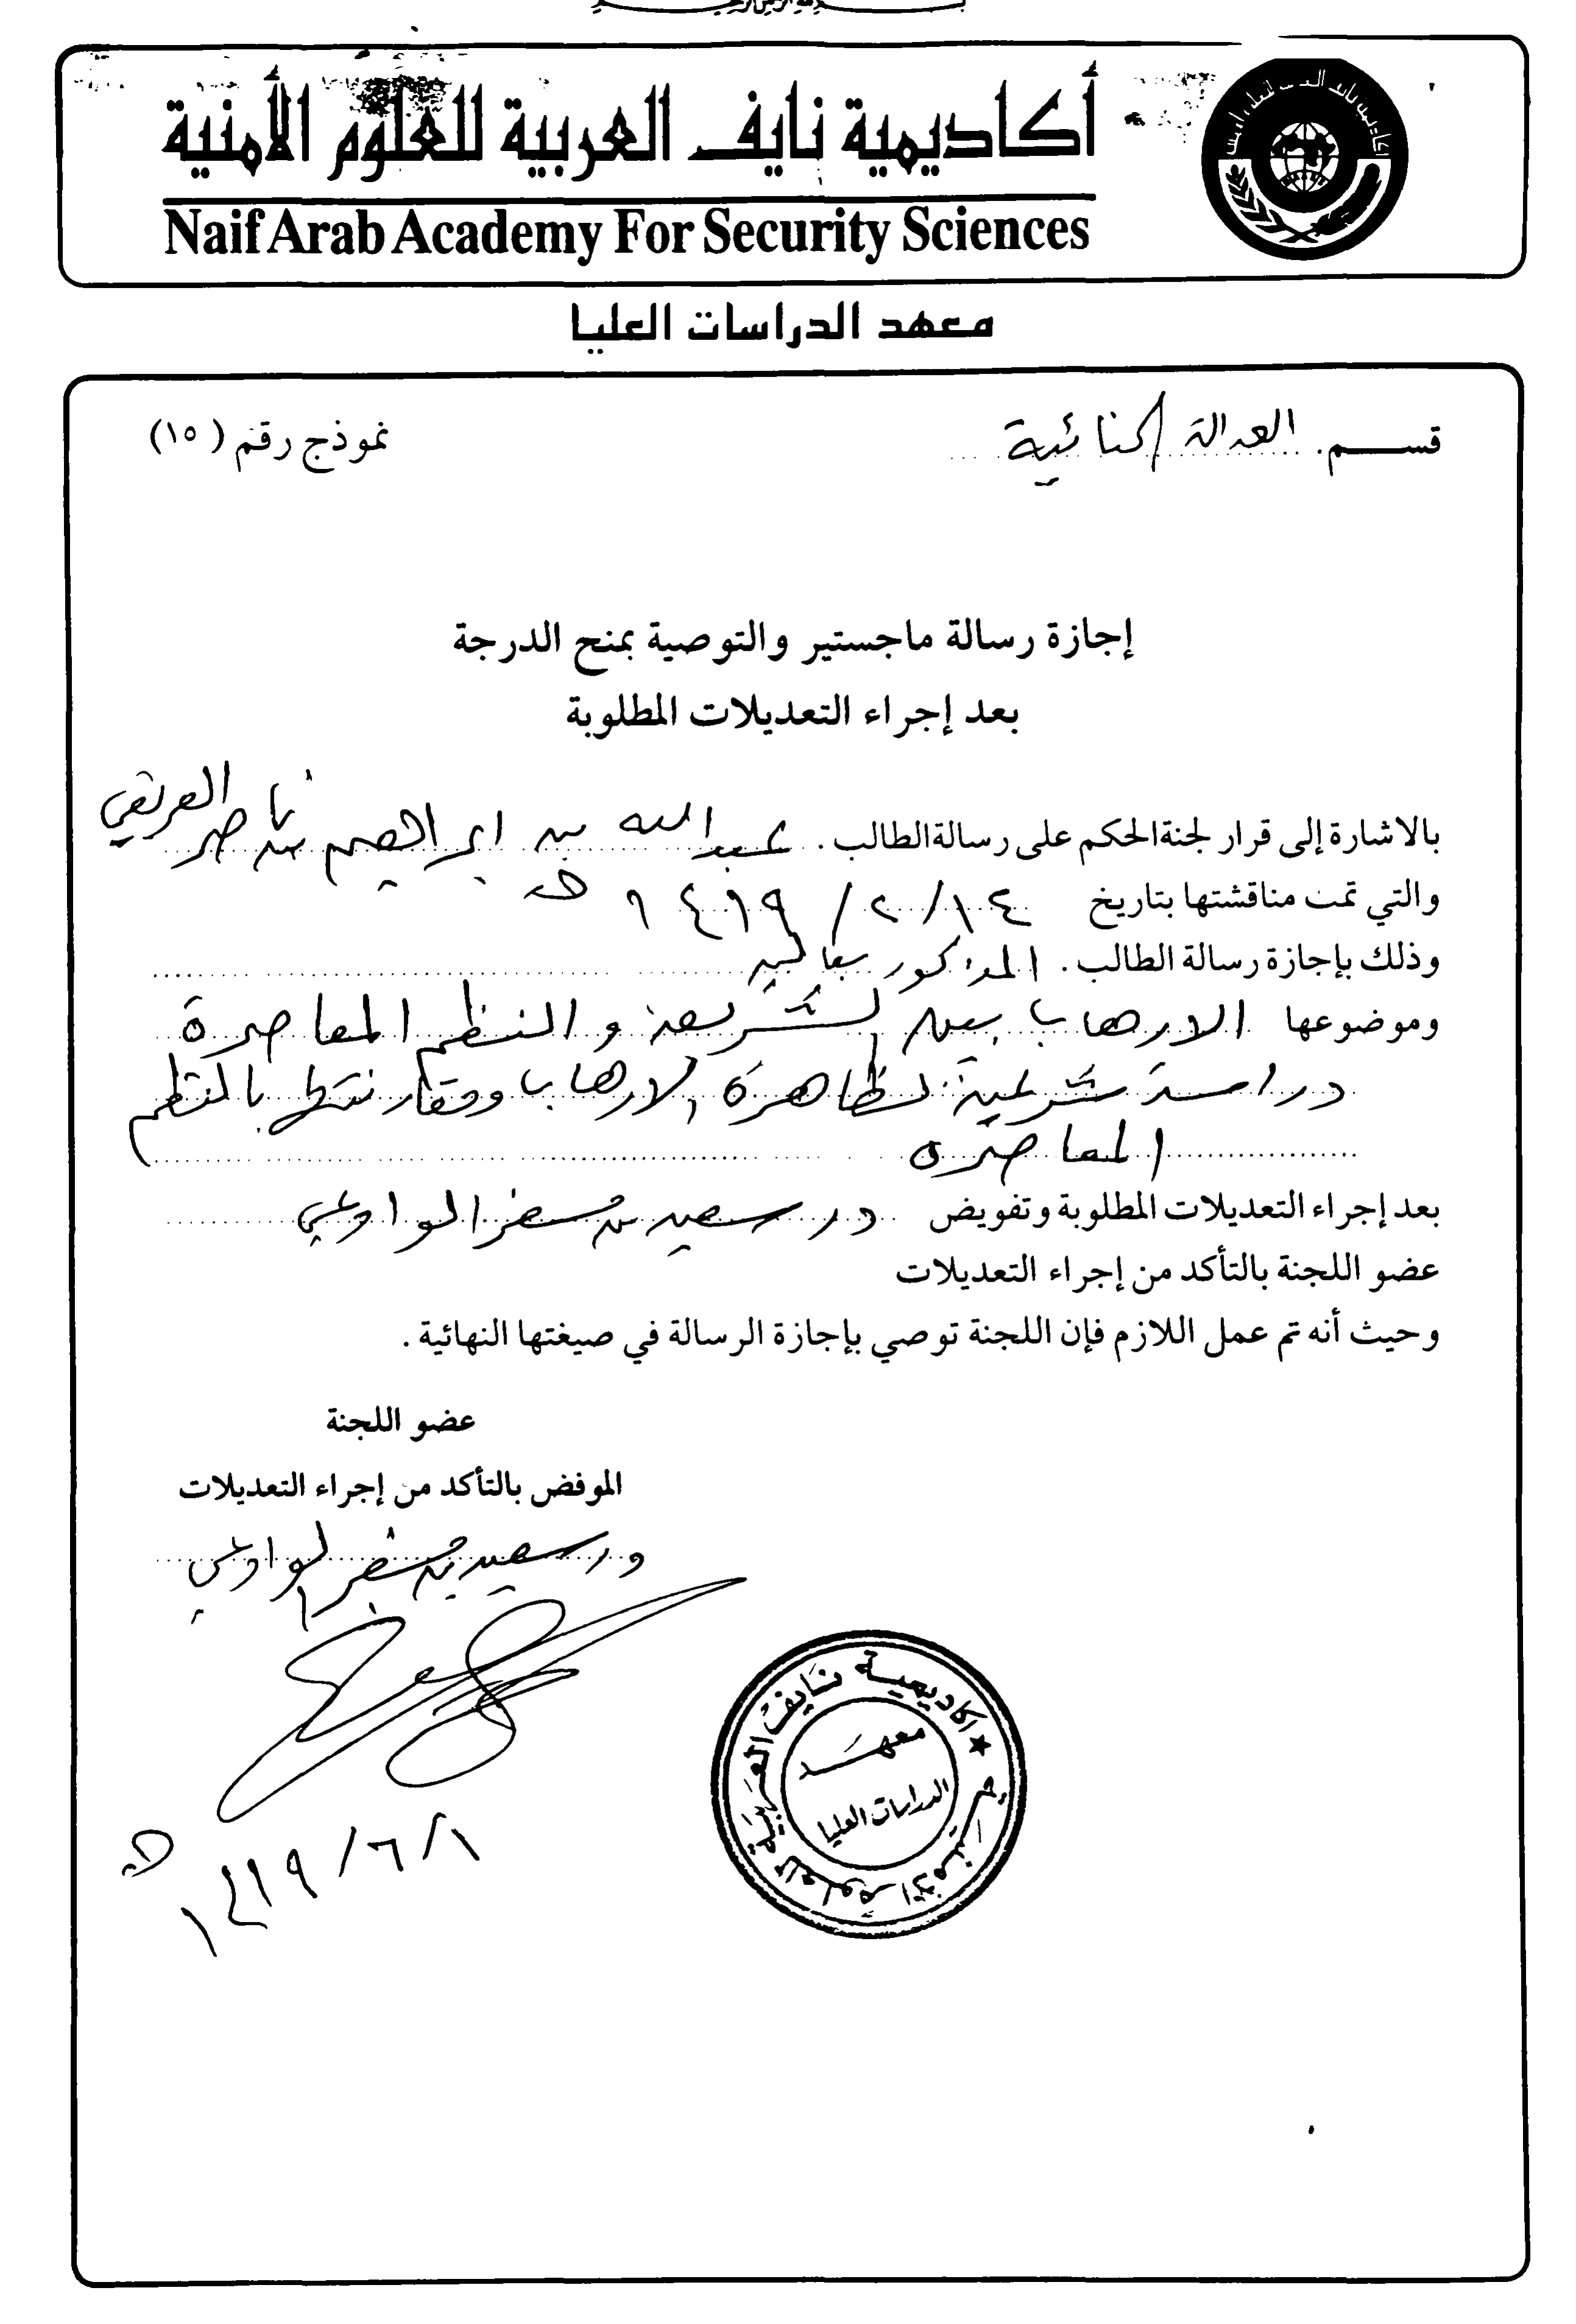 أكاديمية نايف العربية للعلوم الأمنية
Naif Arab Academy For Security Sciences
معهد الدراسات العليا
قســـم. العدالة الجنائية
نموذج رقم (١٥)
إجازة رسالة ماجستير والتوصية بمنح الدرجة
بعد إجراء التعديلات المطلوبة
بالاشارة إلى قرار لجنة الحكم على رسالة الطالب. عبدالله بن ابراهيم بن ناصر العريفي
والتي تمت مناقشتها بتاريخ ١٤/٢/١٤١٩ هـ
وذلك بإجازة رسالة الطالب. المذكور بعاليه
وموضوعها الارهاب بين الشريعة والنظم المعاصرة
دراسة شرعية لظاهرة الارهاب ومقارنتها بالنظم
المعاصره
بعد إجراء التعديلات المطلوبة وتفويض د. سعيد بن مسفر الوادعي
عضو اللجنة بالتأكد من إجراء التعديلات
وحيث أنه تم عمل اللازم فإن اللجنة توصي بإجازة الرسالة في صيغتها النهائية.
عضو اللجنة
الموفض بالتأكد من إجراء التعديلات
د. سعيد بن مسفر الوادعي
١/٦/١٤١٩ هـ
اكاديمية نايف العربية للعلوم الأمنية
معهد
الدراسات العليا